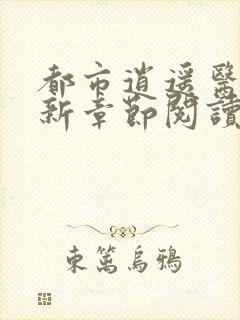 都市逍遥醫
新章節閱讀
東籬烏鴉